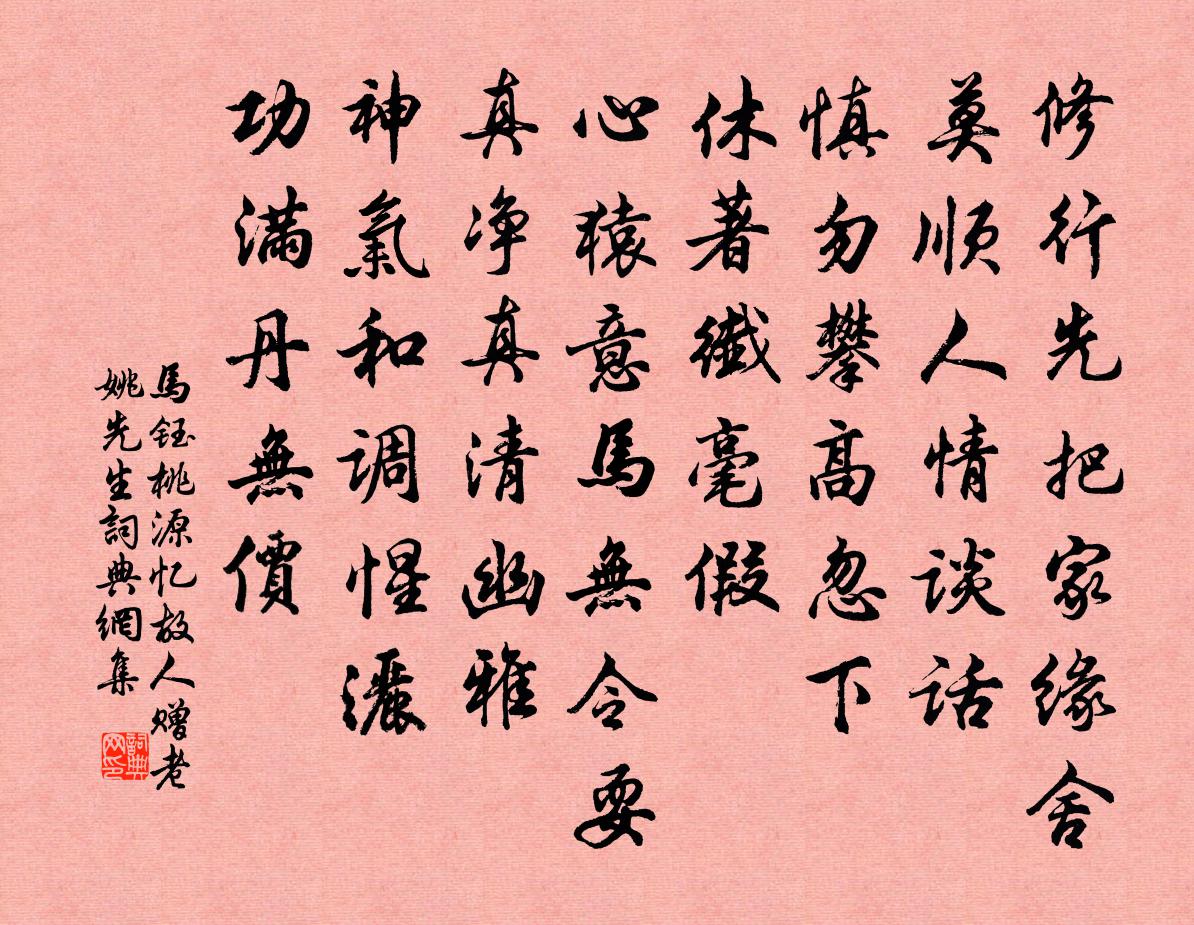 修行先把家缘舍
莫顺人情谈话
慎勿攀高忽下
休著纖毫假
心猿意馬無令耍
真净真清幽雅
神氣和调惺灑
功滿丹無價
馬鈺桃源忆故人赠老
姚先生詞典網集
詞典网印